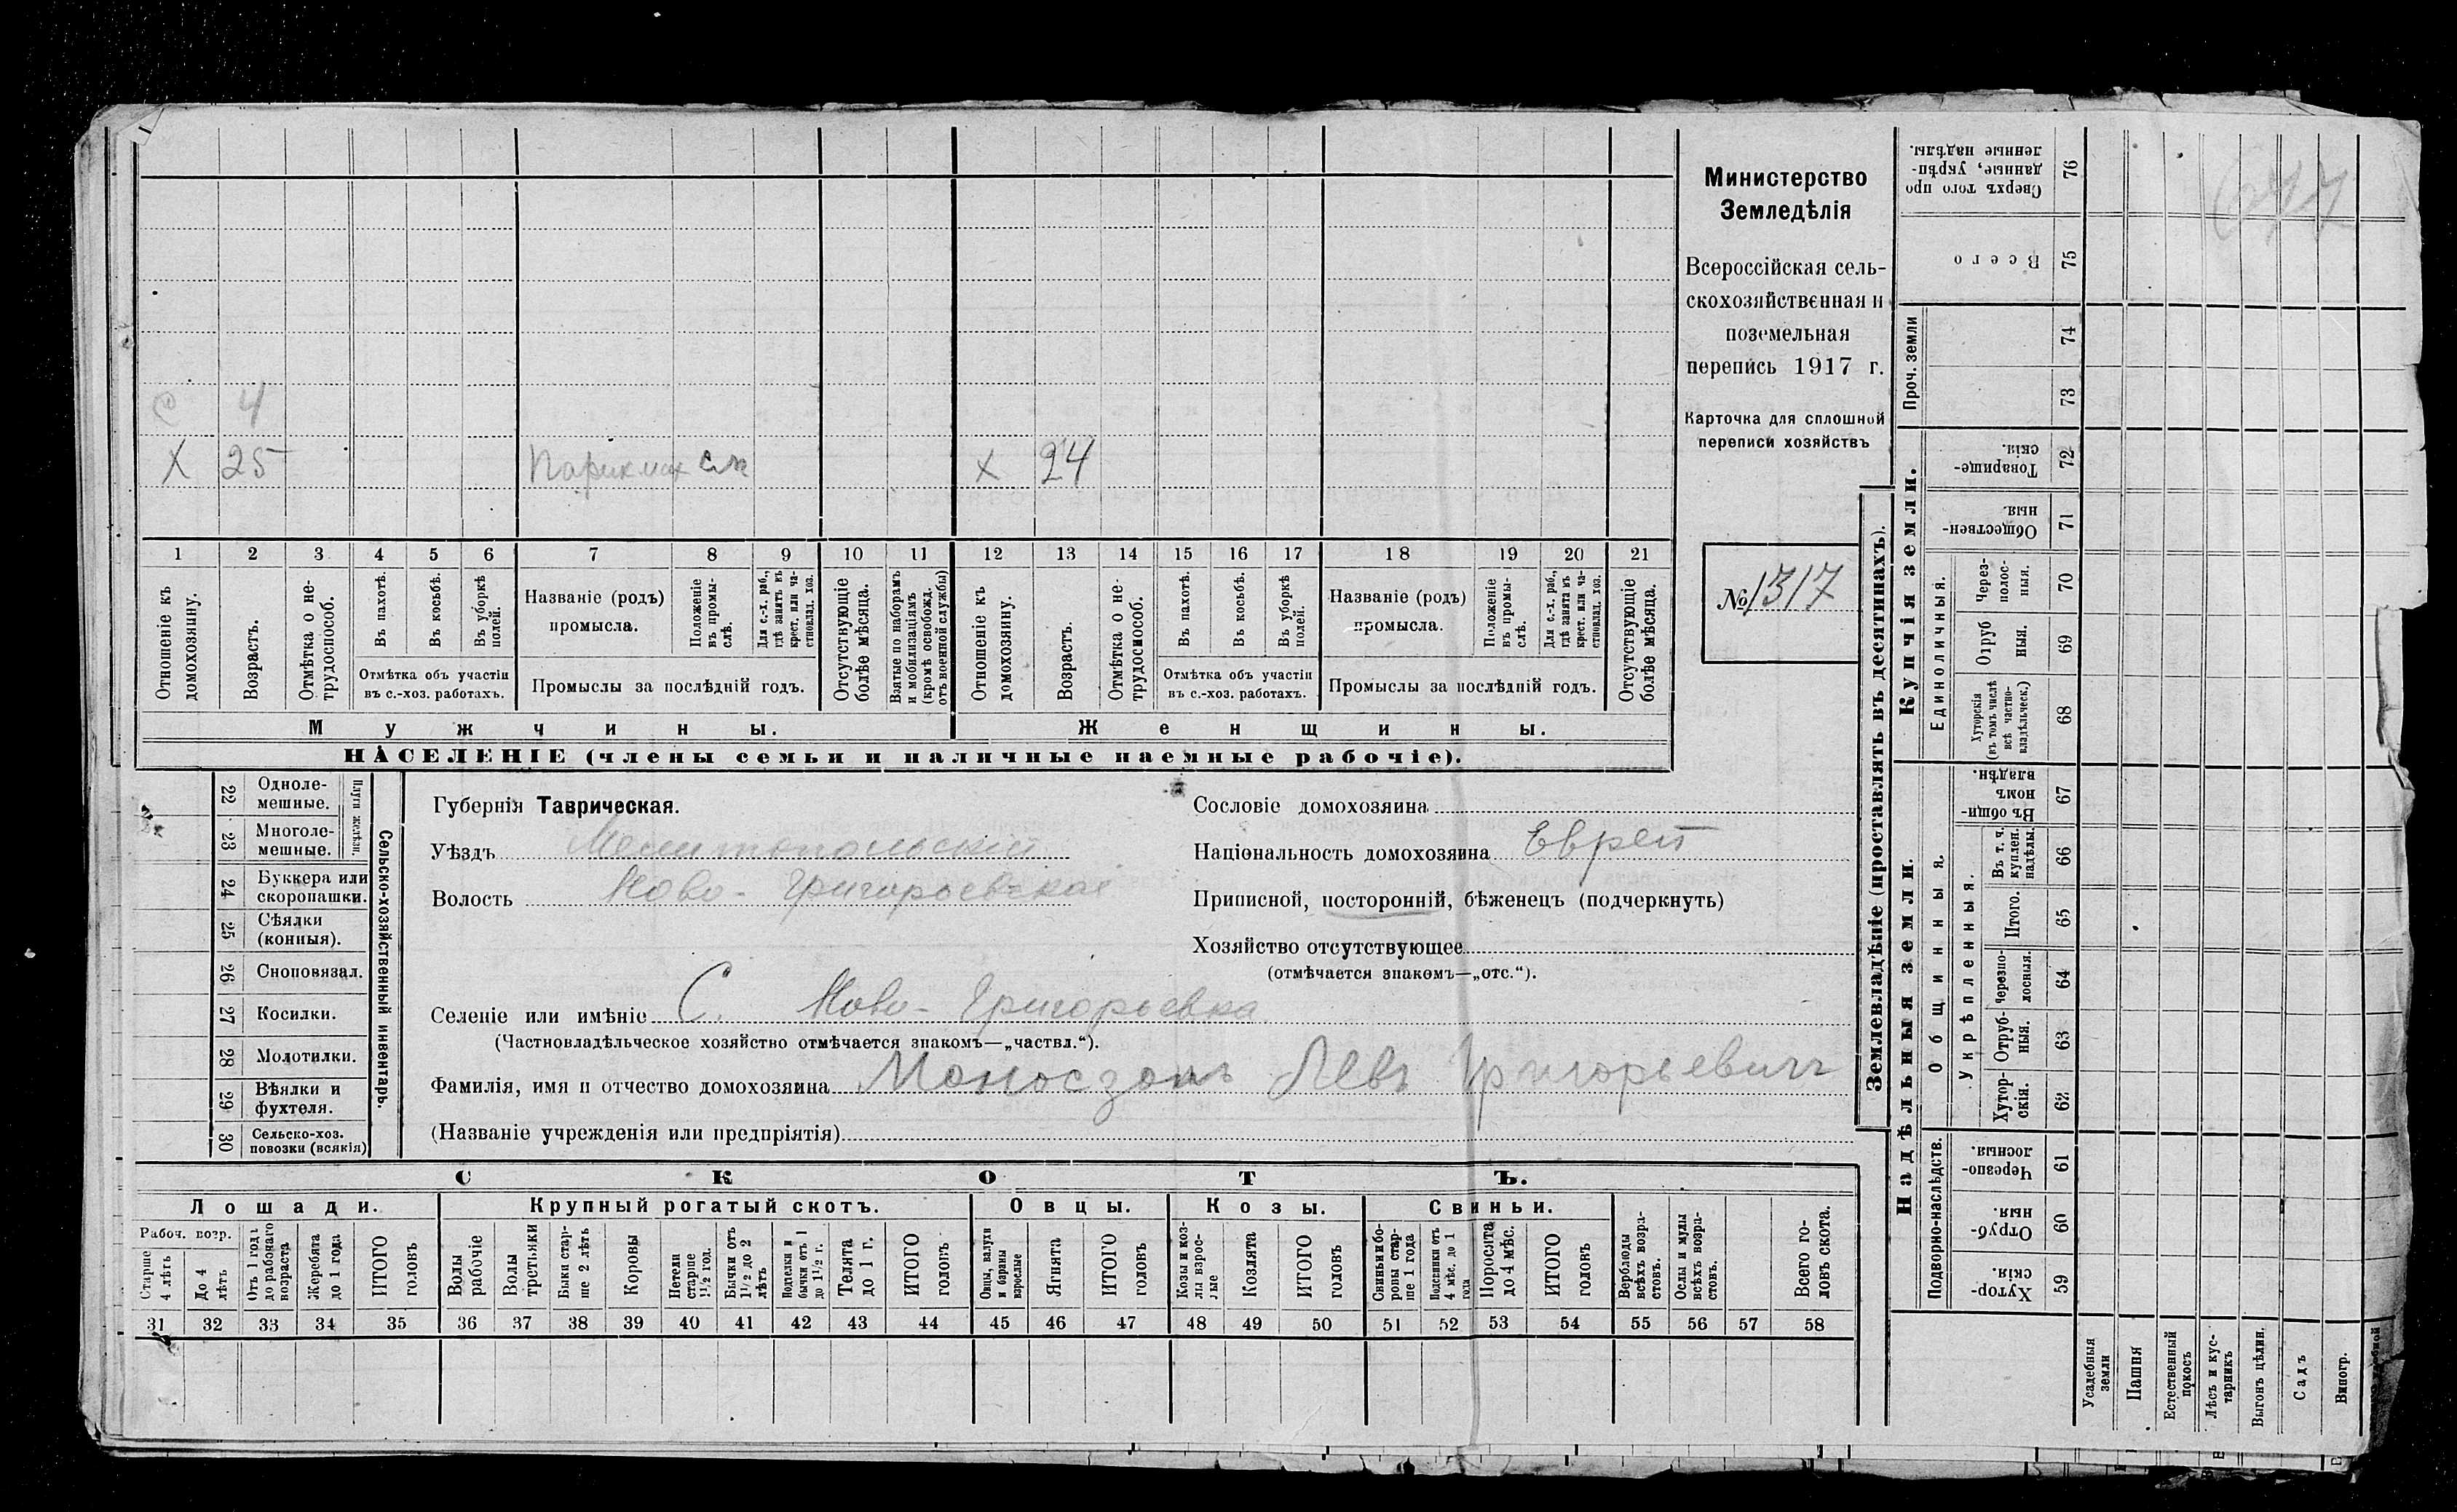 Министерство
Земледѣлія
Всероссійская сель-
скохозяйственная и
поземельная
перепись 1917 г.
Карточка для сплошной
переписи хозяйствъ
№ 1317
647
С 4
X 25 Парикмах X 24
1 2 3 4 5 6 7 8 9 10 11 12 13 14 15 16 17 18 19 20 21
Отношеніе къ домохозяину.
Возрастъ.
Отмѣтка о не-
трудоспособ.
Въ пахотѣ.
Въ косьбѣ.
Въ уборкѣ полей.
Отмѣтка объ участіи
въ с.-хоз. работахъ.
Названіе (родъ)
промысла.
Положеніе
въ промы-
слѣ.
Для с.-х. раб.,
гдѣ занятъ въ
крест. или ча-
стновлад. хоз.
Промыслы за послѣдній годъ.
Отсутствующіе
болѣе мѣсяца.
Взятые по наборамъ
и мобилизаціямъ
(кромѣ освобожд.
отъ военной службы)
Отношеніе къ
домохозяину.
Возрастъ.
Отмѣтка о не-
трудоспособ.
Въ пахотѣ.
Въ косьбѣ.
Въ уборкѣ
полей.
Отмѣтка объ участіи
въ с.-хоз. работахъ.
Названіе (родъ)
промысла.
Положеніе
въ промы-
слѣ.
Для с.-х. раб.,
гдѣ занята въ
крест. или ча-
стновлад. хоз.
Промыслы за послѣдній годъ.
Отсутствующіе
болѣе мѣсяца.
Мужчины.
Женщины.
НАСЕЛЕНІЕ (члены семьи и наличные наемные рабочіе).
22 Одноле-
мешные.
23 Многоле-
мешные.
Плуги желѣзн.
24 Буккера или
скоропашки.
25 Сѣялки
(конныя).
26 Сноповязал.
27 Косилки.
28 Молотилки.
29 Вѣялки и
фухтеля.
30 Сельско-хоз.
повозки (всякія)
Сельско-хозяйственный инвентарь.
Губернія Таврическая.
Уѣздъ Мелитопольскій
Волость Ново-Григорьевская
Сословіе домохозяина
Національность домохозяина Еврей
Приписной, посторонній, бѣженецъ (подчеркнуть)
Хозяйство отсутствующее
(отмѣчается знакомъ—„отс.“).
Селеніе или имѣніе С. Ново-Григорьевка
(Частновладѣльческое хозяйство отмѣчается знакомъ—„частвл.“).
Фамилія, имя и отчество домохозяина Моносзонъ Левъ Григорьевичъ
(Названіе учрежденія или предпріятія)
СКОТЪ.
Лошади.
Крупный рогатый скотъ.
Овцы.
Козы.
Свиньи.
Рабоч. возр.
Старше
4 лѣтъ
До 4
лѣтъ
Отъ 1 года
до рабочаго
возраста
Жеребята
до 1 года
ИТОГО
головъ
Волы
рабочіе
Волы
третьяки
Быки стар-
ше 2 лѣтъ
Коровы
Нетели
старше
1 1/2 год.
Бычки отъ
1 1/2 до 2
лѣтъ
Подтелки и
бычки отъ 1
до 1 1/2 г.
Телята
до 1 г.
ИТОГО
головъ
Овцы, валухи
и бараны
взрослые
Ягнята
ИТОГО
головъ
Козы и коз-
лы взрос-
лые
Козлята
ИТОГО
головъ
Свиньи и бо-
ровы стар-
ше 1 года
Подсвинки отъ
4 мѣс. до 1
года
Поросята
до 4 мѣс.
ИТОГО
головъ
Верблюды
всѣхъ возра-
стовъ.
Ослы и мулы
всѣхъ возра-
стовъ.
Всего го-
ловъ скота.
31 32 33 34 35 36 37 38 39 40 41 42 43 44 45 46 47 48 49 50 51 52 53 54 55 56 57 58
Землевладѣніе (проставлять въ десятинахъ).
Купчія земли.
Надѣльныя земли.
Сверхъ того про
данные, укрѣп-
ленные надѣлы.
76
Всего
75
Проч. земли
74
73
Товарище-
скія.
72
Обществен-
ныя.
71
Единоличныя.
Через-
полос-
ныя.
70
Отруб
ныя.
69
Хуторскія
(въ томъ числѣ
всѣ частно-
владѣльческ.)
68
Общинныя.
Въ общи
номъ
владѣн.
67
Укрѣпленныя.
Въ т. ч.
куплен.
надѣлы.
66
Итого.
65
Черезпо-
лосныя.
64
Отруб-
ныя.
63
Хутор-
скія.
62
Подворно-наслѣдств.
Черезпо-
лосныя.
61
Отруб-
ныя.
60
Хутор-
скія.
59
Усадебныя
земли
Пашня
Естественный
покосъ
Лѣсъ и кус-
тарникъ
Выгонъ цѣлин.
Садъ
Виногр.